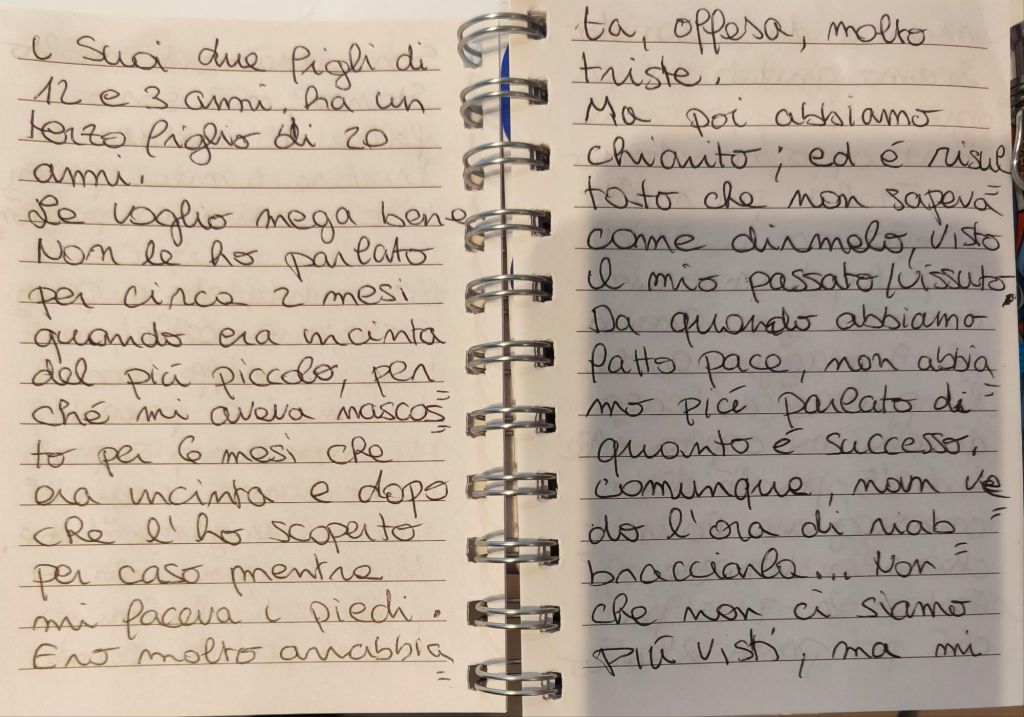 i suoi due figli di
12 e 3 anni, ha un
terzo figlio di 20
anni.
Le voglio mega bene
Non le ho parlato
per circa 2 mesi
quando era incinta
del più piccolo, per=
ché mi aveva nascos=
to per 6 mesi che
era incinta e dopo
che l'ho scoperto
per caso mentre
mi faceva i piedi.
Ero molto arrabbia=
ta, offesa, molto
triste.
Ma poi abbiamo
chiarito; ed é risul=
tato che non sapeva
come dirmelo, visto
il mio passato/vissuto.
Da quando abbiamo
fatto pace, non abbia=
mo più parlato di
quanto é successo.
comunque, non ve=
do l'ora di riab=
bracciarla... Non
che non ci siamo
più visti, ma mi